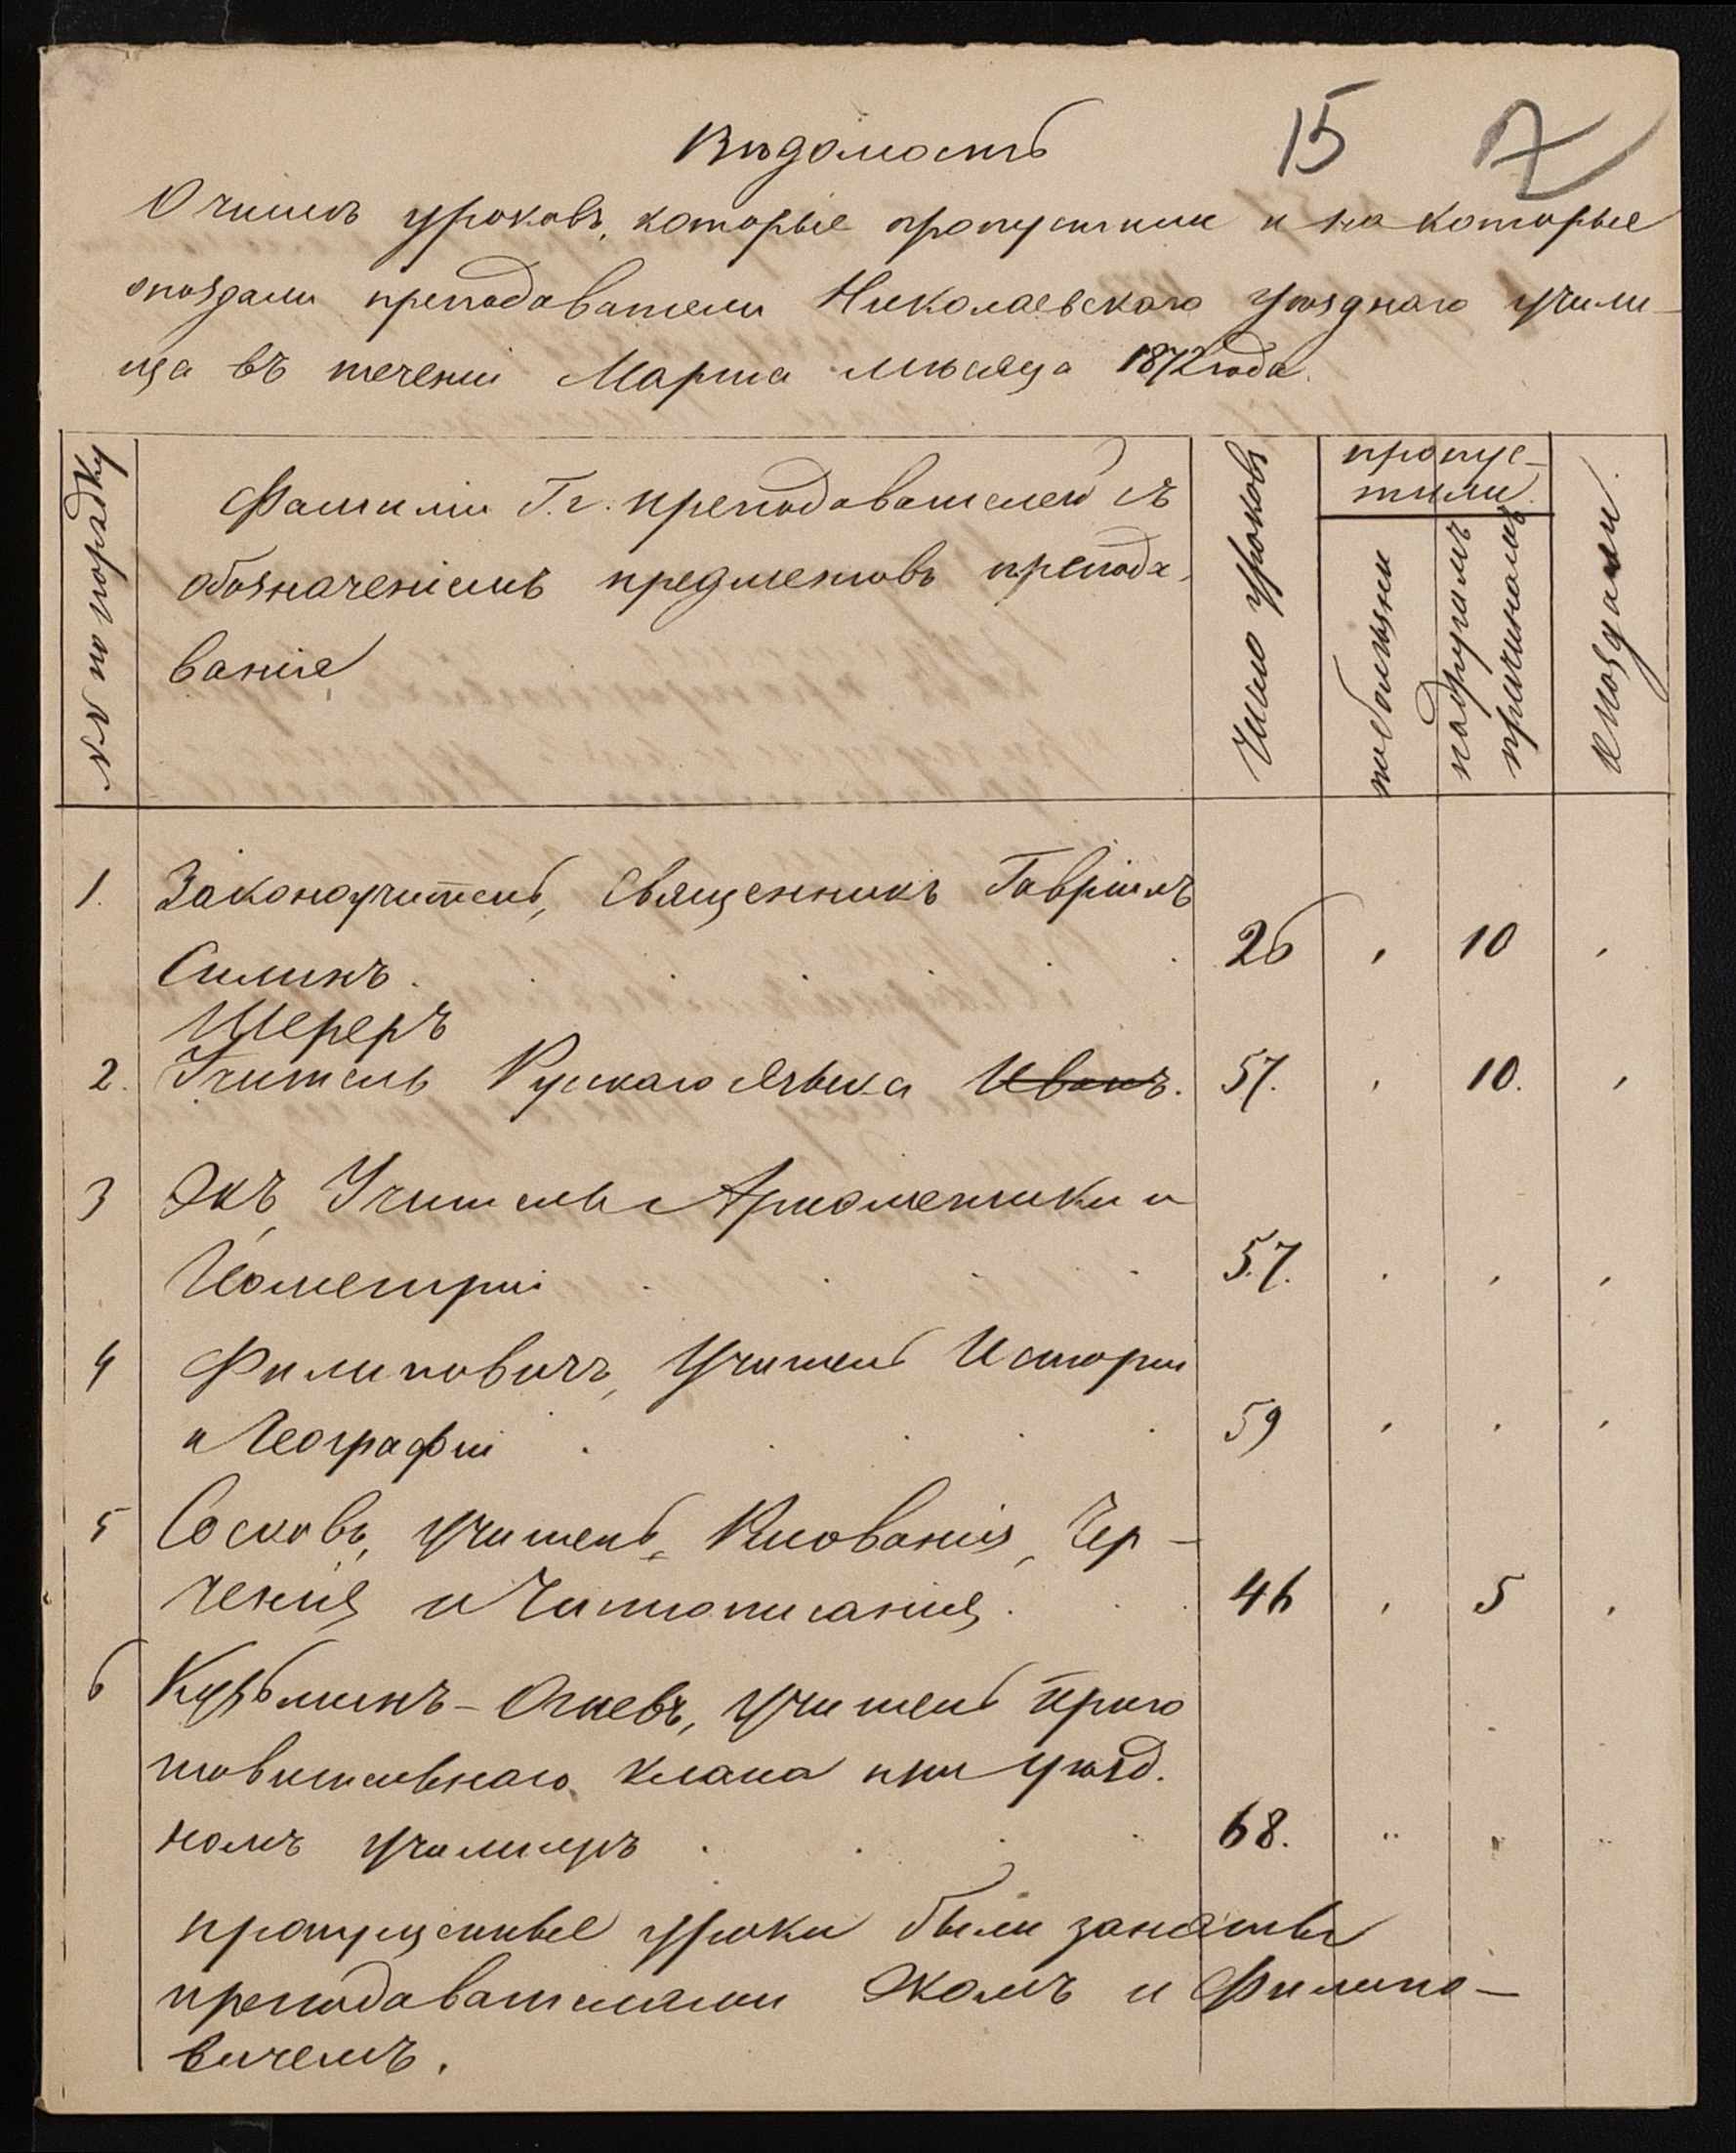 15
Вѣдомость
О числѣ уроковъ, которые пропустили и на которые
опоздали преподаватели Николаевскаго Уѣзднаго учили-
ща въ теченіи Марта мѣсяца 1872 года.
№№ по порядку
Фамиліи Г.г. преподавателей съ
обозначеніемъ предметовъ препода-
ванія
Число уроковъ
пропус-
тили
по болѣзни
по другимъ
причинамъ
опоздали
1. Законоучитель, Священникъ Гавріилъ
Силинъ. 26 " 10 "
Шереръ
2. Учитель Рускаго языка Иванъ. 57. " 10. "
3 Экъ, Учитель Ариѳметики и
Геометріи 57. " " "
4 Филиповичъ, Учитель Исторіи
и Географіи 59 " " "
5 Сосковъ, Учитель Рисованія, Чер-
ченія и Чистописанія. 46 " 5 "
6 Кузьминъ-Огневъ, Учитель приго
товительнаго класса при Уѣзд.
номъ училищѣ 68. " " "
пропущенные уроки были заняты
преподавателями Экомъ и Филипо-
вичемъ.